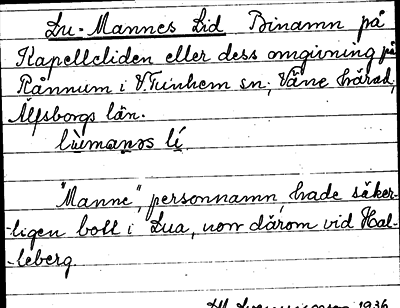 Lu-Mannes Lid Binamn på
Kapellcliden eller dess omgivning på
Rånnum i V. Tunhem sn, Väne härad,
Älfsborgs län.
lùmanəs lí
"Manne", personnamn, hade säker-
-ligen bott i Lua, norr därom vid Hal-
-leberg.
1936